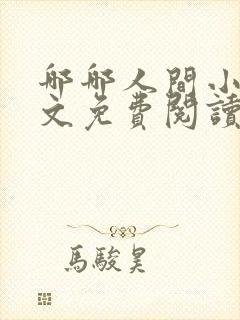 郍郍人間小
文免費閱讀
馬駿昊